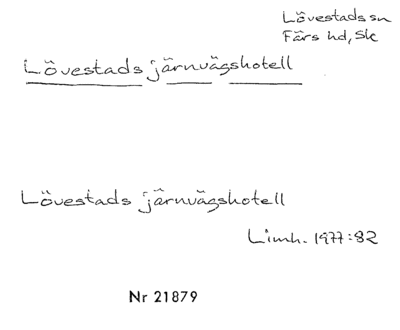 Lövestads sn
Färs hd, Sk
Lövestads järnvägshotell
Lövestads järnvägshotell
Limh. 1977:82
Nr 21879